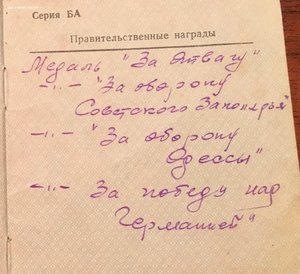 Серия БА
Правительственные награды
Медаль "За Отвагу"
–"– "За оборону
Советского Заполярья"
–"– "За оборону
Одессы"
–"– За победу над
Германией"